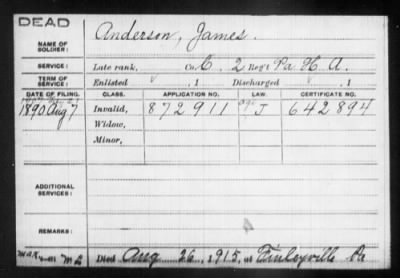 DEAD
NAME OF SOLDIER: Anderson, James.
SERVICE: Late rank, Co. C. 2 Reg't Pa H. A.
TERM OF SERVICE: Enlisted , 1 Discharged , 1
DATE OF FILING. CLASS. APPLICATION NO. LAW. CERTIFICATE NO.
1890 Aug 7 Invalid, 872911 J 642894
Widow,
Minor,
ADDITIONAL SERVICES:
REMARKS:
Died Aug 26, 1915, at Finleyville Pa